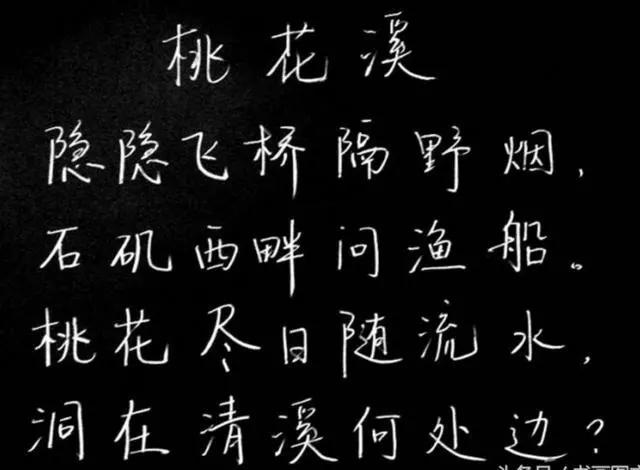 桃花溪
隐隐飞桥隔野烟,
石矶西畔问渔船。
桃花尽日随流水,
洞在清溪何处边?